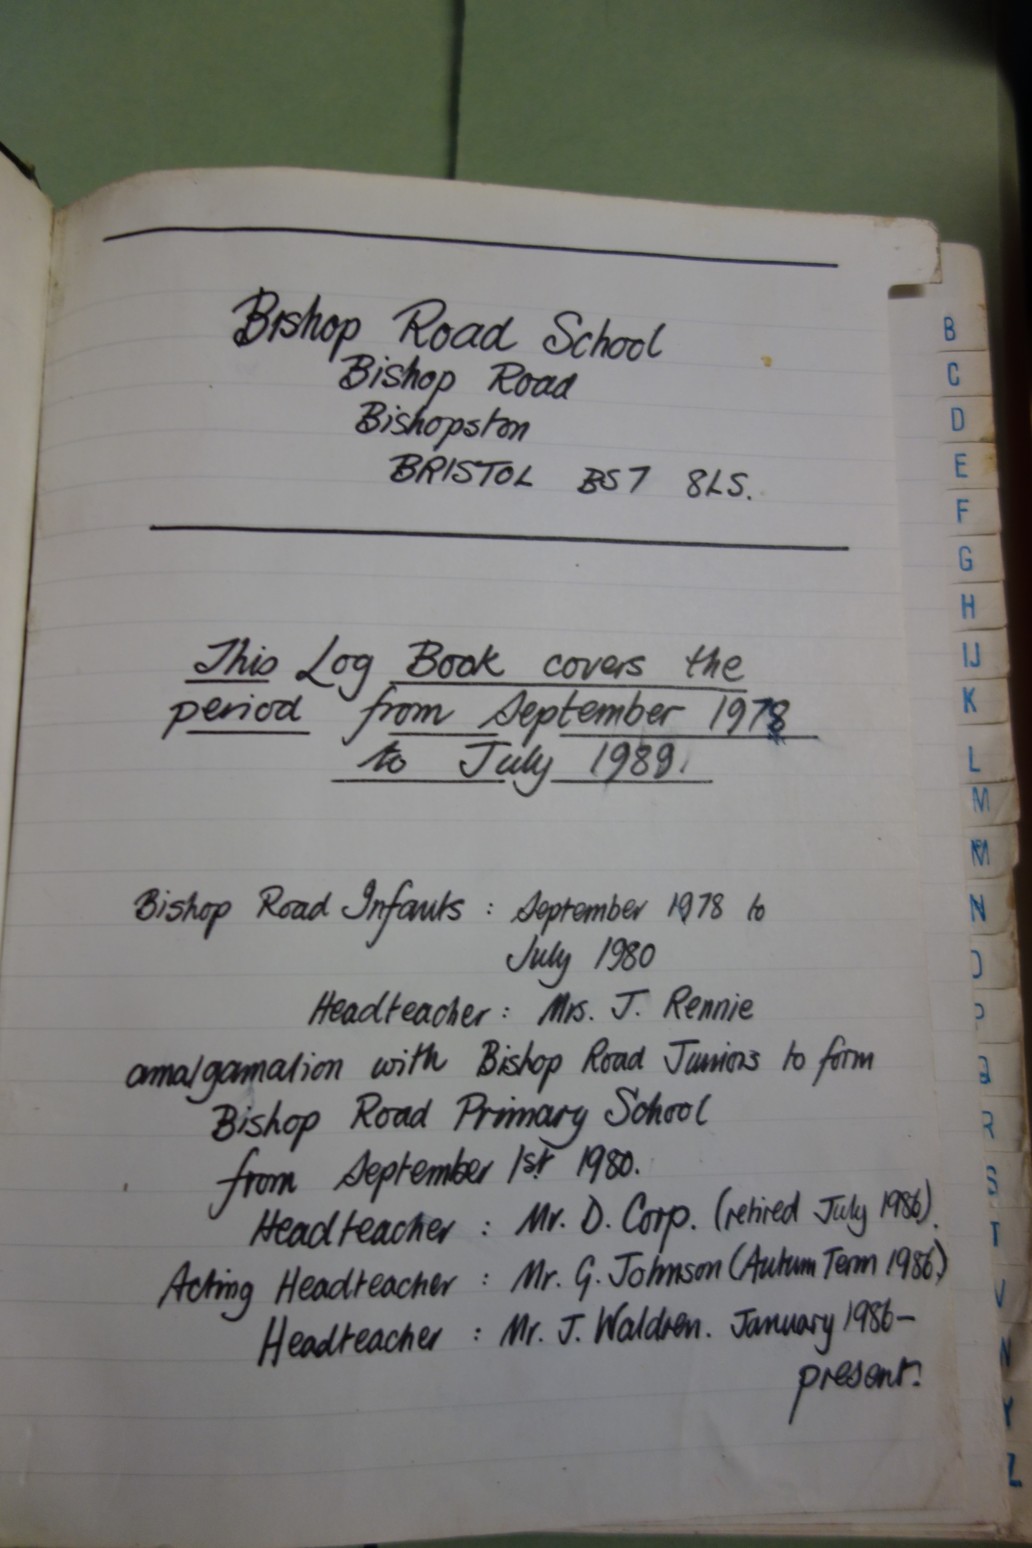 Bishop Road School
Bishop Road
Bishopston
BRISTOL BS7 8LS.
This Log Book covers the
period from September 1978
to July 1989.
Bishop Road Infants : September 1978 to
July 1980
Headteacher : Mrs. J. Rennie
amalgamation with Bishop Road Juniors to form
Bishop Road Primary School
from September 1st 1980.
Headteacher : Mr. D. Corp. (retired July 1986).
Acting Headteacher : Mr. G. Johnson (Autum Term 1986)
Headteacher : Mr. J. Waldren. January 1986-
present.
B
C
D
E
F
G
H
IJ
K
L
M
M
N
O
P
Q
R
S
T
V
W
Y
Z